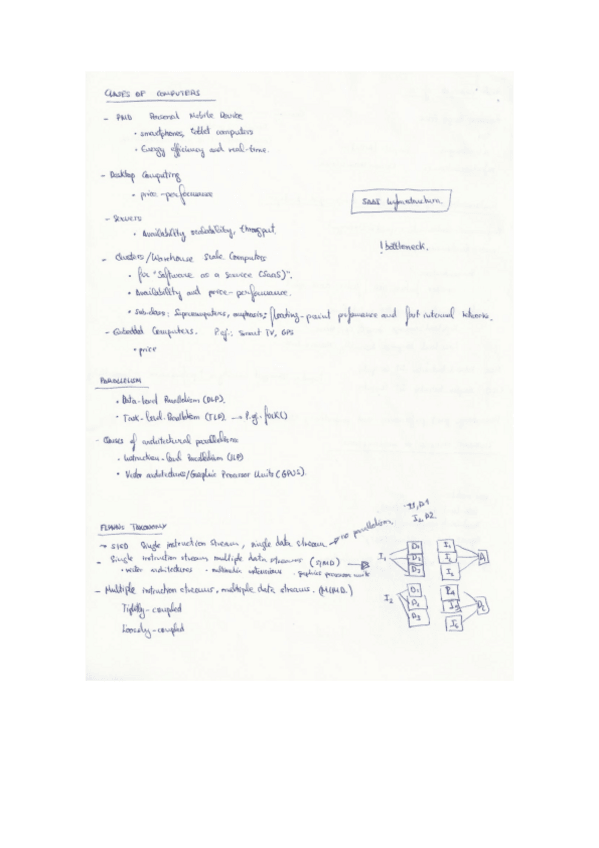 CLASSES OF COMPUTERS
- PMD Personal Mobile Device
• smartphones, tablet computers
• Energy efficiency and real-time.
- Desktop Computing
• price-performance
SAAS Infrastructure
- Servers
• Availability, scalability, throughput
! bottleneck.
- Clusters/Warehouse Scale Computers
• for "Software as a Service (SaaS)".
• Availability and price-performance.
• Subclass: Supercomputers, emphasis: floating-point performance and fast internal networks.
- Embedded Computers. P.g.: Smart TV, GPS
• price
PARALLELISM
• Data-level Parallelism (DLP).
• Task-level-Parallelism (TLP). → P.g. fork()
- Classes of architectural parallelism:
• Instruction-level Parallelism (ILP)
• Vector architectures/Graphic Processor Units (GPUS).
I1, D1
I2, D2
FLYNN'S TAXONOMY
→ SISD Single instruction stream, single data stream → no parallelism
- Single instruction stream multiple data streams (SIMD)
• vector architectures - multimedia extensions - graphics processor units
- Multiple instruction streams, multiple data streams. (MIMD.)
Tightly-coupled
Loosely-coupled
I1 D1 D2 D3
I2 D1 D2 D3